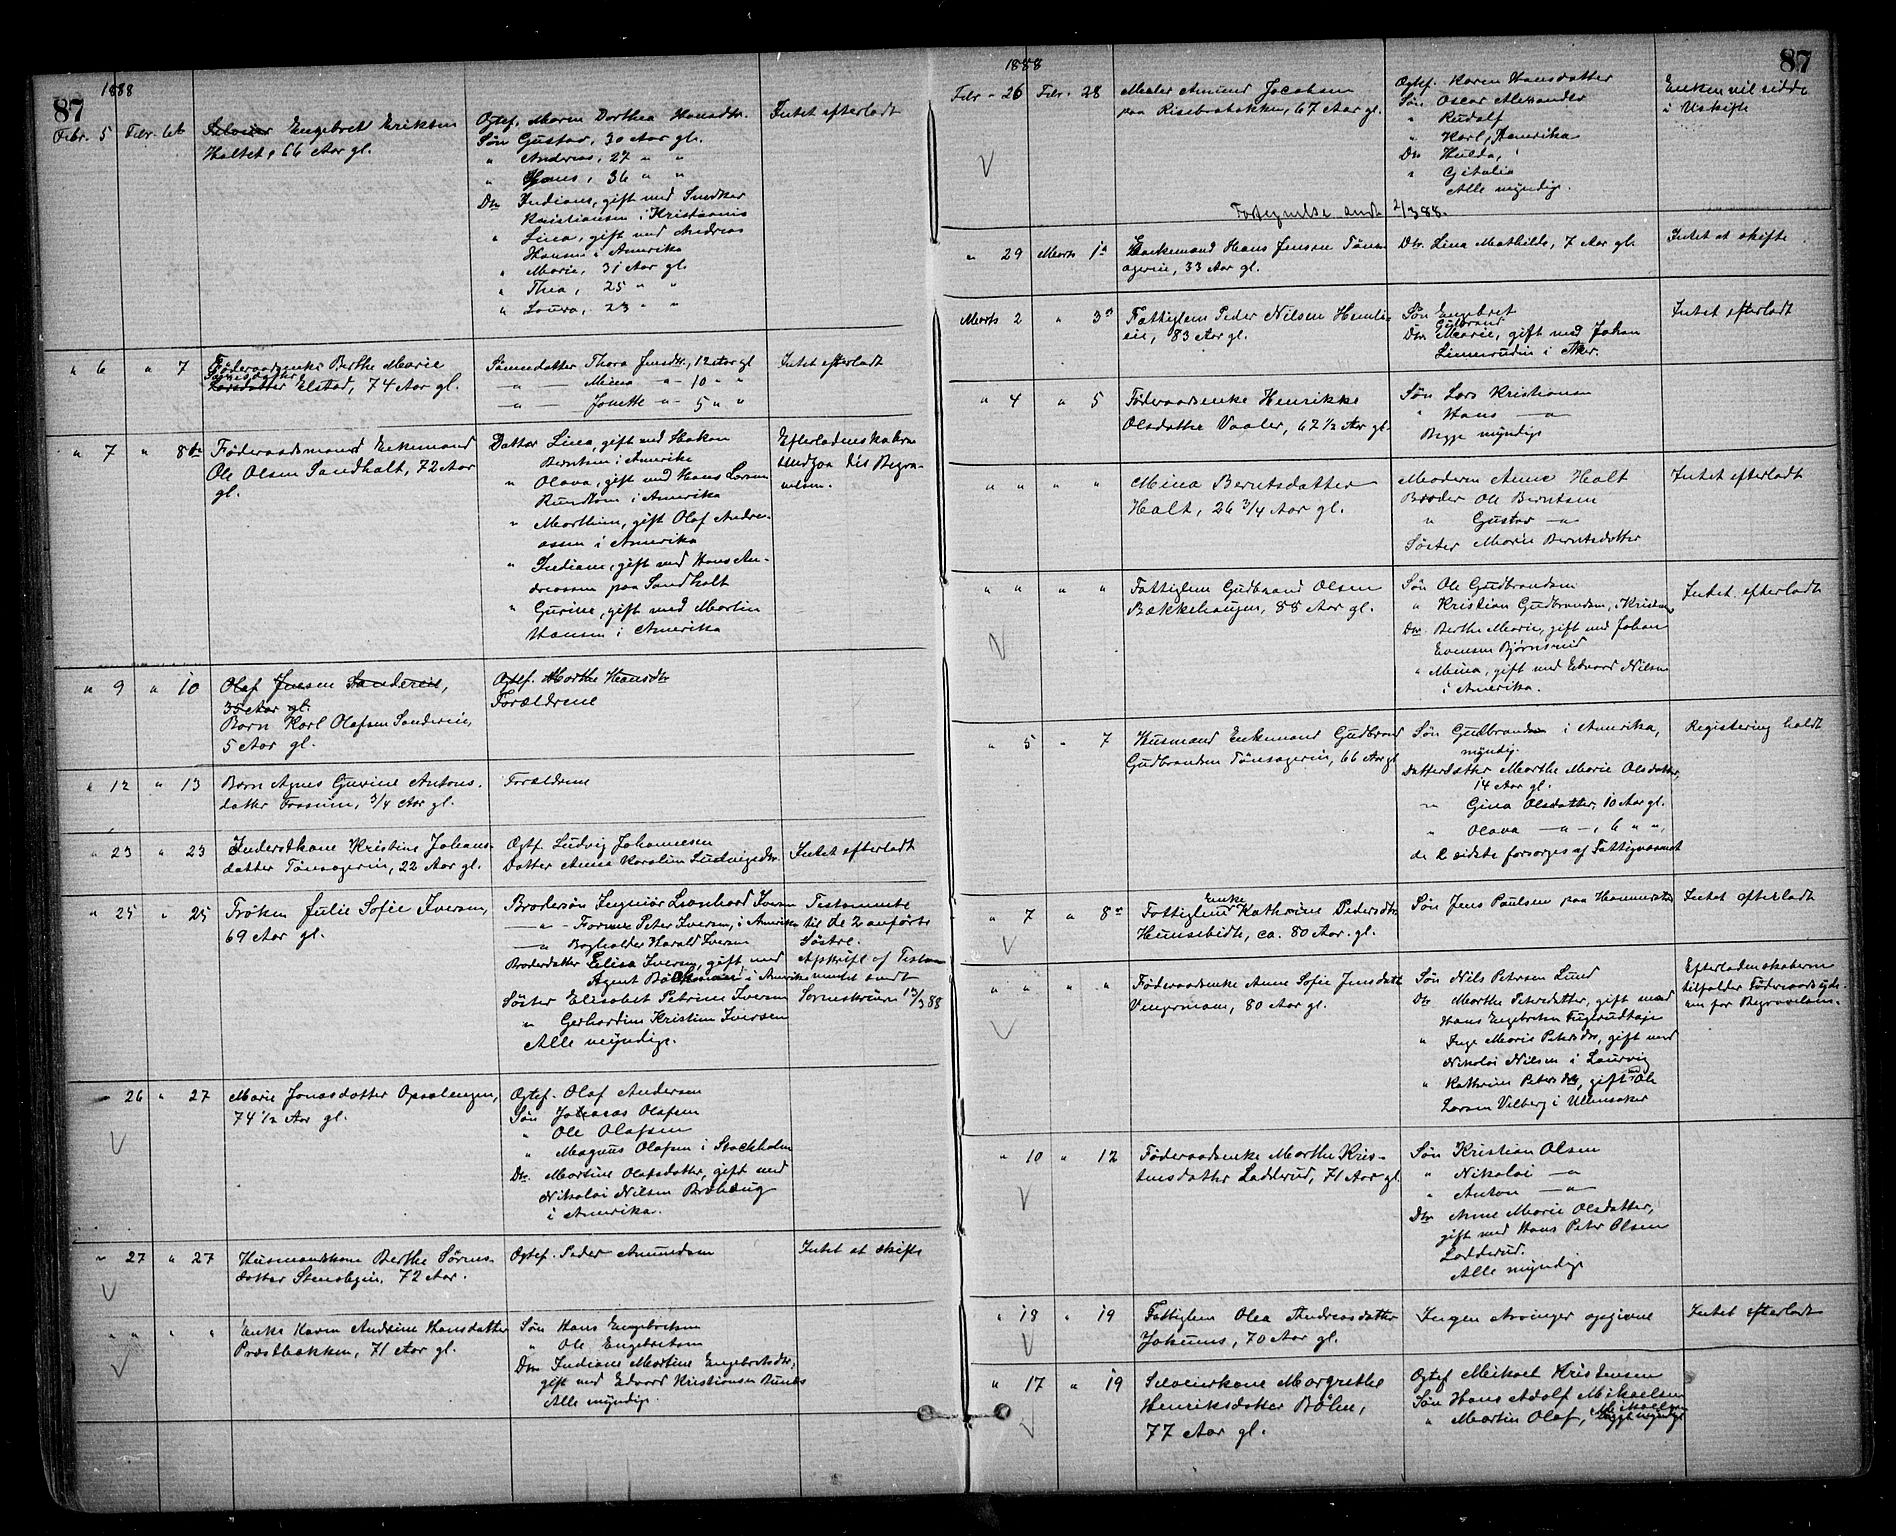 87
1888
Febr. 5 Febr. 6te Selveier Engebret Eriksen
Holtet, 66 Aar gl.
Ogtef. Maren Dorthea Hansdtr.
Søn Gustav, 30 Aar gl.
" Andreas, 27 " "
" Hans, 36 " "
Dtr Indiane, gift med Snedker
Kristiansen i Kristiania
" Lina, gift med Andreas
Hansen i Amerika
" Marie, 31 Aar gl.
" Thea, 25 " "
" Laura, 23 " "
Intet efterladt
" 6 " 7 Føderaadsenke Berthe Marie
Jonsdatter
Larsdatter Elstad, 74 Aar gl.
Sønnedatter Thora Jensdtr., 12 Aar gl
—"— Mina —"— 10 " "
—"— Jonette —"— 5 " "
Intet efterladt
" 7 " 8de Føderaadsmand Enkemand
Ole Olsen Sandholt, 72 Aar
gl.
Datter Lina, gift med Hakon
Berntsen i Amerika
" Olava, gift med Hans Larsen
Rundtom i Amerika
" Marthine, gift Olaf Andre-
assen i Amerika
" Indiane, gift med Hans An-
dreassen paa Sandholt
" Gurine, gift med Martin
Hansen i Amerika
Efterladenskaberne
medgaa til Begra-
velsen.
" 9 " 10 Olaf Jensen Sandereie,
35 Aar gl.
Barn Karl Olafsen Sandereie,
5 Aar gl.
Ogtef. Marthe Hansdtr
Forældrene
" 12 " 13 Barn Agnes Gurine Antons-
datter Fossum, 3/4 Aar gl.
Forældrene
" 23 " 23 Inderstkone Kristine Johans-
datter Tønsagerin, 22 Aar gl.
Ogtf. Ludvig Johannesen
Datter Anna Karoline Ludvigsdtr.
Intet efterladt
" 25 " 25 Frøken Julie Sofie Iversen,
69 Aar gl.
Brodersøn Ingeniør Leonhard Iversen
—"— Farmer Peter Iversen, i Amerika
—"— Bogholder Harald Iversen
Broderdatter Elisa Iversen, gift med
Agent i Amerika
Søster Elisabet Petrine Iversen
" Gerhardine Kristine Iversen
Alle myndige.
Testamente
til de 2 anførte
Søstre.
Afskrift af Testa-
mentet sendt
Sorenskriveren 13/3 88
" 26 " 27 Marie Jonasdatter Opsalengen,
74 1/2 Aar gl.
Ogtef. Olaf Andersen
Søn Johannes Olafsen
" Ole Olafsen
" Magnus Olafsen i Stockholm
Dtr. Martine Olafsdatter, gift med
Nikolai Nilsen Bråhaug
i Amerika.
" 27 " 27 Husmandskone Berthe Sørens-
datter Stensbyeie, 72 Aar.
Ogtef. Peder Amundsen
Intet at skifte
" " " " Enke Karen Andrine Hansdatter
Præstbakken, 71 Aar gl.
Søn Hans Engebretsen
" Ole Engebretsen
Dtr Indiane Martine Engebretsdtr,
gift med Edvard Kristiansen
Alle myndige.
87
1888
Febr. 26 Febr. 28 Maler Amund Jacobsen
paa Risebrobakken, 67 Aar gl.
Ogtef. Karen Hansdatter
Søn Oscar Alexander
" Rudolf
" Karl, i Amerika
Dtr Hulda,
" Gitalia
Alle myndige.
Enken vil sidde
i Uskifte
Fortegnelse sendt 2/3 88.
" 29 Marts 1ste Enkemand Hans Jensen Tøns-
agerie, 33 Aar gl.
Dtr. Lina Mathilde, 7 Aar gl.
Intet at skifte
Marts 2 " 3die Fattiglem Peder Nilsen Hemli-
eie, 83 Aar gl.
Søn Engebret
Gulbrand
Dtr Marie, gift med Johan
Linnerudin i Aker.
Intet efterladt
" 4 " 5 Føderaadsenke Henrikke
Olsdatter Vaaler, 62 1/2 Aar gl.
Søn Lars Kristiansen
" Hans —"—
Begge myndige
" " " " Mina Berntsdatter
Holt, 26 3/4 Aar gl.
Moderen Anne Holt
Broder Ole Berntsen
" Gustav —"—
Søster Marie Berntsdatter
Intet efterladt
" " " " Fattiglem Gudbrand Olsen
Bækkehaugen, 88 Aar gl.
Søn Ole Gudbrandsen
" Kristian Gudbrandsen, i Kristiania
Dtr Berthe Marie, gift med Johan
Evensen Bjørnsrud
" Mina, gift med Edvard Nilsen
i Amerika.
Intet efterladt
" 5 " 7 Husmand Enkemand Gudbrand
Gudbrandsen Tønsagerin, 66 Aar gl
Søn Gudbrandsen i Amerika,
myndig.
Datterdatter Marthe Marie Olsdatter,
14 Aar gl.
" Gina Olsdatter, 10 Aar gl.
" Olava —"—, 6 " "
de 2 sidste forsørges af Fattigvæsenet
Registering holdt
" 7 " 8de Fattiglem Enke Kathrine Pedersdtr
Hunsebidt, ca. 80 Aar. gl.
Søn Jens Paulsen paa Hammerstad
Intet efterladt
" " " " Føderaadsenke Anne Sofie Jensdatter
Vengermoen, 80 Aar gl.
Søn Nils Petersen Lund
Dtr Marthe Petersdatter, gift med
Hans Engebretsen Fuglerudhaje
" Inge Marie Petersdtr, gift med
Nikolai Nilsen i Laurvig
" Kathrine Petersdtr, gift med Ole
Larsen Vilberg i Ullensaker
Efterladenskaberne
tilfalder Føderaadsyde-
ren for Begravelsen.
" 10 " 12 Føderaadsenke Marthe Kris-
tensdatter Ladderud, 71 Aar gl.
Søn Kristian Olsen
" Nikolai —"—
" Anton —"—
Dtr Anne Marie Olsdatter,
gift med Hans Peter Olsen
Ladderud.
Alle myndige
" 18 " 19 Fattiglem Olea Andreasdatter
Jokums, 70 Aar gl.
Ingen Arvinger opgivne
Intet efterladt
" 17 " 19 Selveierkone Margrethe
Henriksdatter Bøhn,
77 Aar gl.
Ogtef Mikael Kristensen
Søn Hans Adolf Mikaelsen
" Martin Olaf, Mikaelsen
Begge myndige